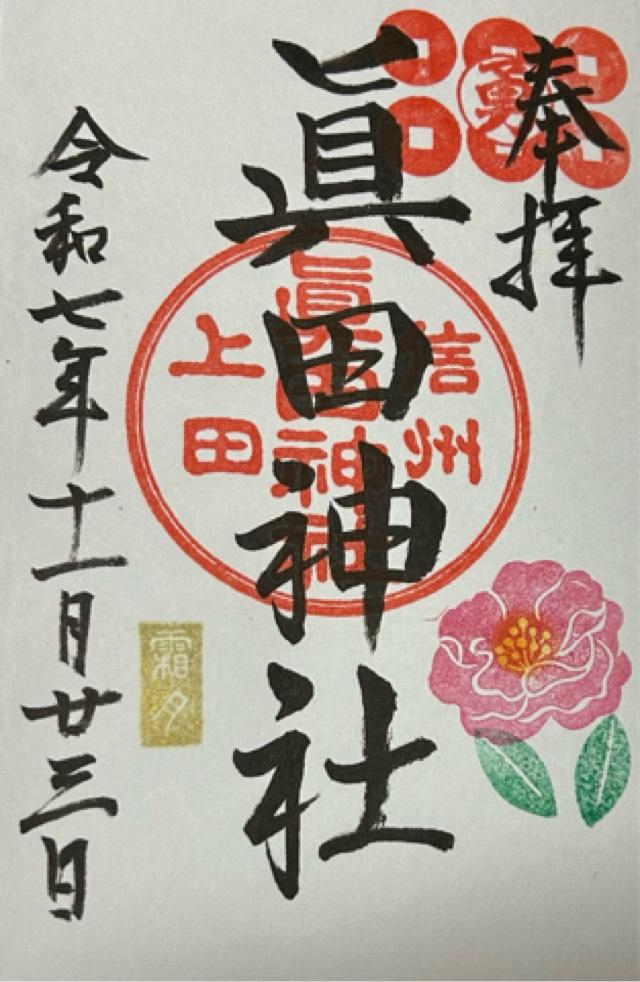 奉拝
眞田神社
信州
眞田神社
上田
霜夕
令和七年十一月廿三日